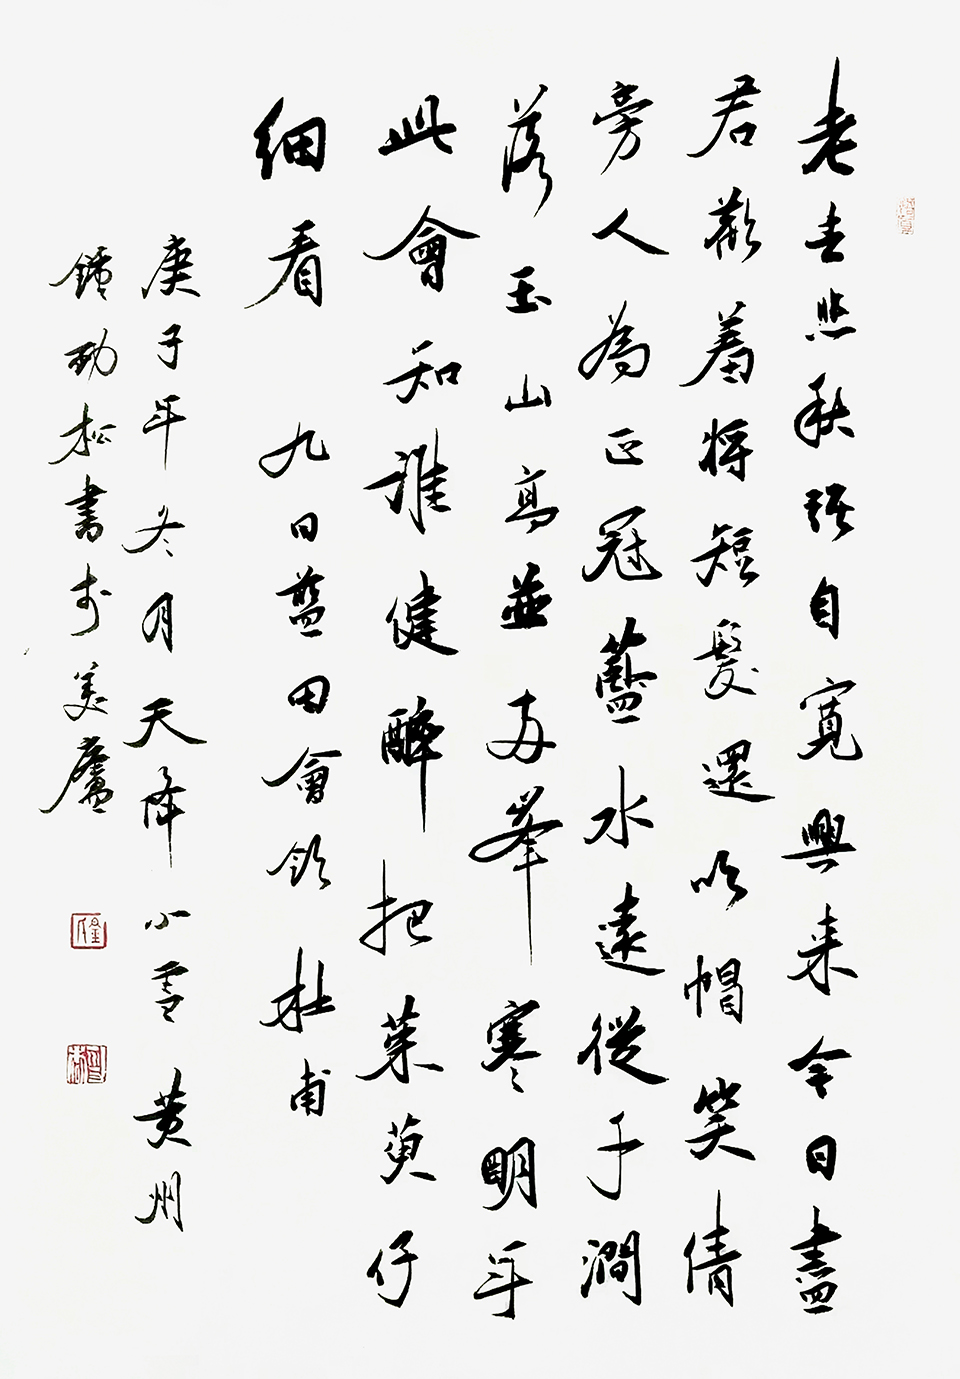 老去悲秋强自寬興来今日盡
君歡羞將短髮還吹帽笑倩
旁人為正冠藍水遠從千澗
落玉山高並兩峯寒明年
此會知誰健醉把茱萸仔
細看 九日藍田會飲杜甫
庚子年冬月天降小雪黄州
鍾勁松書於美廬